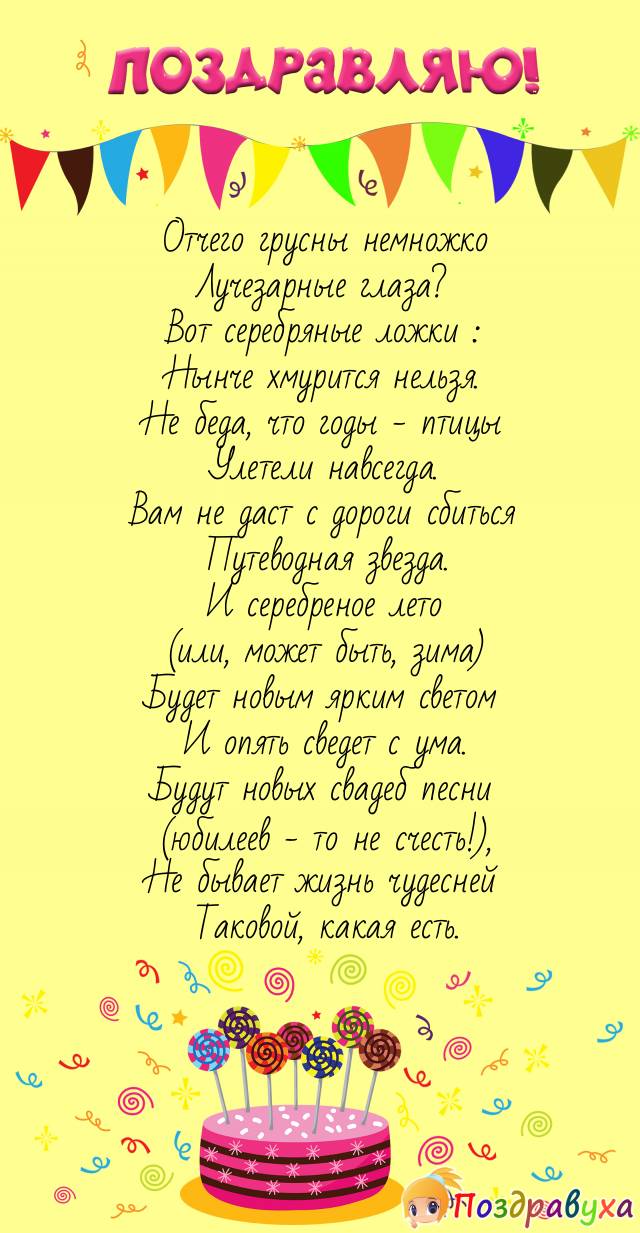 ПОЗДРАВЛЯЮ!
Отчего грусны немножко
Лучезарные глаза?
Вот серебряные ложки :
Нынче хмурится нельзя.
Не беда, что годы - птицы
Улетели навсегда.
Вам не даст с дороги сбиться
Путеводная звезда.
И серебреное лето
(или, может быть, зима)
Будет новым ярким светом
И опять сведет с ума.
Будут новых свадеб песни
(юбилеев - то не счесть!),
Не бывает жизнь чудесней
Таковой, какая есть.
Поздравуха